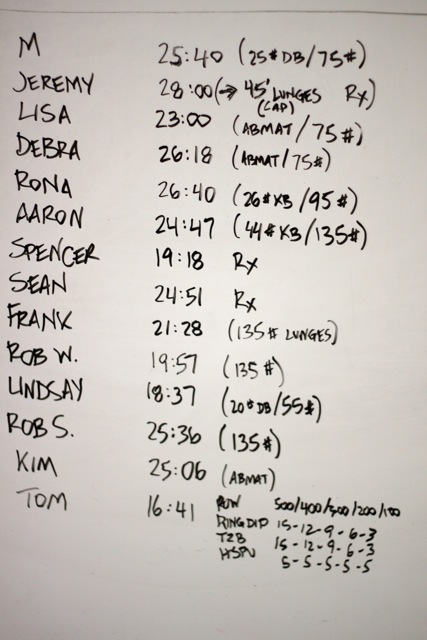 M 25:40 (25# DB/75#)
JEREMY 28:00 (→ 45' LUNGES Rx)
(CAP)
LISA 23:00 (ABMAT/75#)
DEBRA 26:18 (ABMAT/75#)
RONA 26:40 (26# KB/95#)
AARON 24:47 (44# KB/135#)
SPENCER 19:18 Rx
SEAN 24:51 Rx
FRANK 21:28 (135# LUNGES)
ROB W. 19:57 (135#)
LINDSAY 18:37 (20# DB/55#)
ROB S. 25:36 (135#)
KIM 25:06 (ABMAT)
TOM 16:41 ROW 500/400/300/200/100
RING DIP 15-12-9-6-3
T2B 15-12-9-6-3
HSPU 5-5-5-5-5